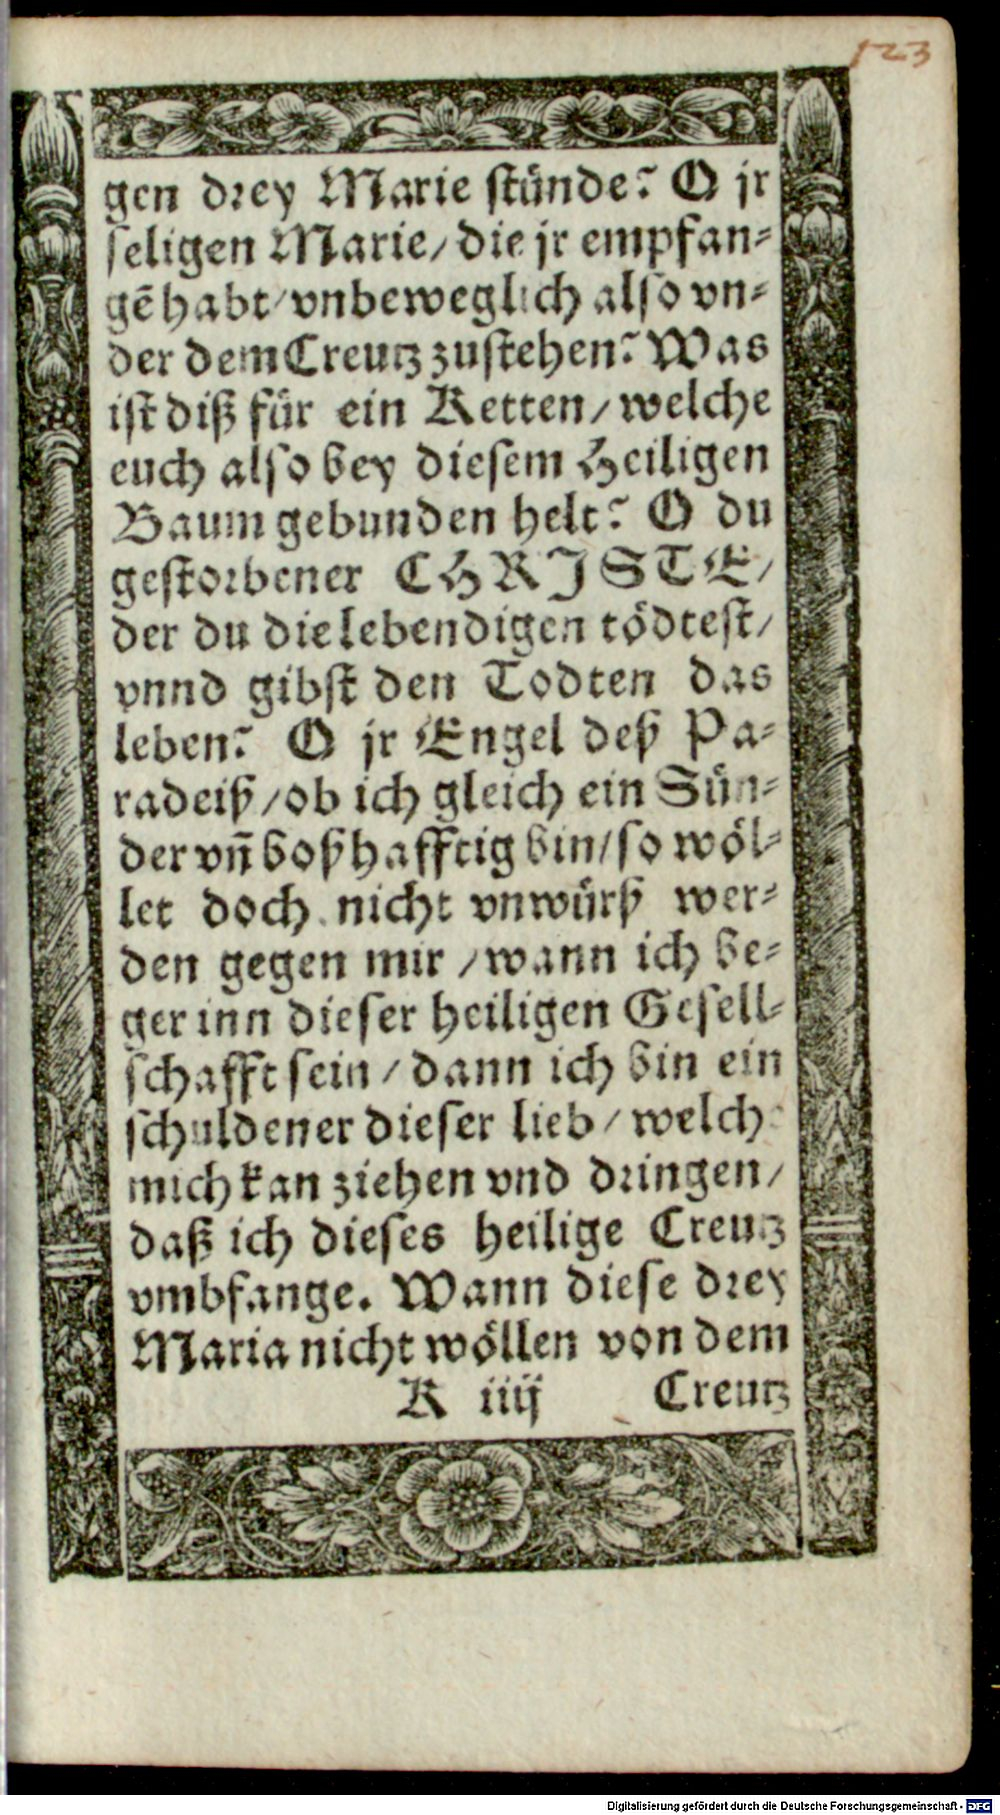 123
gen drey Marie stünde? O jr
seligen Marie/ die jr empfan-
gē habt/ vnbeweglich also vn-
der dem Creutz zustehen? Was
ist diß für ein Ketten/ welche
euch also bey diesem Heiligen
Baum gebunden helt? O du
gestorbener CHRISTE/
der du die lebendigen tödtest/
vnnd gibst den Todten das
leben? O jr Engel deß Pa-
radeiß/ ob ich gleich ein Sün-
der vñ boßhafftig bin/ so wöl-
let doch nicht vnwürß wer-
den gegen mir/ wann ich be-
ger inn dieser heiligen Gesell-
schafft sein/ dann ich bin ein
schuldener dieser lieb/ welche
mich kan ziehen vnd dringen/
daß ich dieses heilige Creutz
vmbfange. Wann diese drey
Maria nicht wöllen von dem
K iiij Creutz
Digitalisierung gefördert durch die Deutsche Forschungsgemeinschaft - DFG